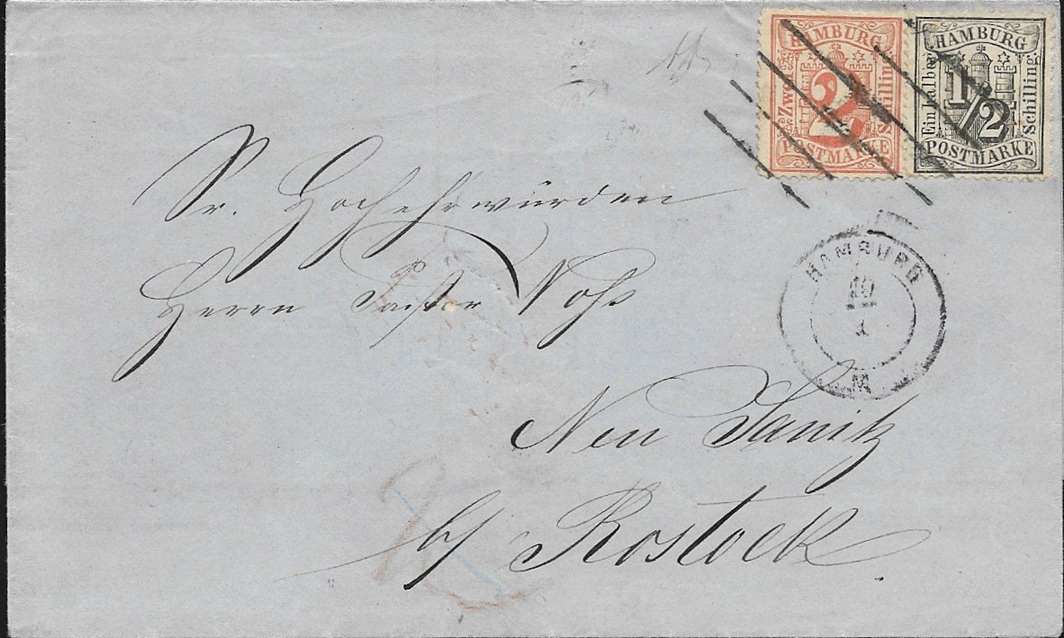 HAMBURG
Zwei Schilling
2
POSTMARKE
HAMBURG
Ein halber Schilling
1/2
POSTMARKE
HAMBURG
10
1
M
Sr. Hochehrwürden
Herrn Pastor Voß
Neu Sanitz
b/ Rostock